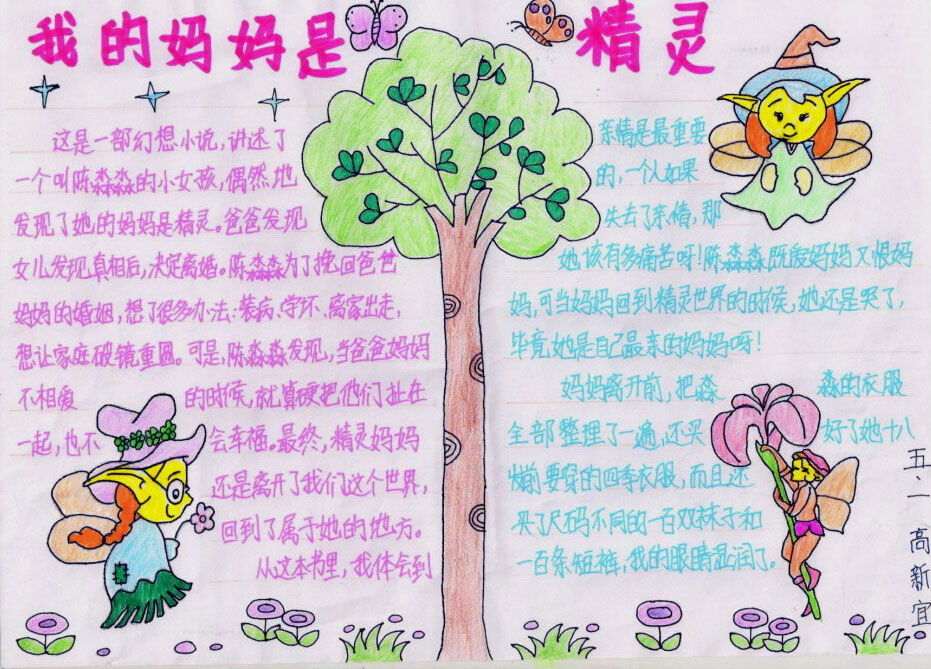 我的妈妈是精灵
这是一部幻想小说，讲述了
一个叫陈淼淼的小女孩，偶然地
发现了她的妈妈是精灵。爸爸发现
女儿发现真相后，决定离婚。陈淼淼为了挽回爸爸
妈妈的婚姻，想了很多办法：装病、学坏、离家出走，
想让家庭破镜重圆。可是，陈淼淼发现，当爸爸妈妈
不相爱的时候，就算硬把他们扯在
一起，也不会幸福。最终，精灵妈妈
还是离开了我们这个世界，
回到了属于她的地方。
从这本书里，我体会到
亲情是最重要
的，一个人如果
失去了亲情，那
她该有多痛苦呀！陈淼淼既爱妈妈又恨妈
妈，可当妈妈回到精灵世界的时候，她还是哭了，
毕竟她是自己最亲的妈妈呀！
妈妈离开前，把淼淼的衣服
全部整理了一遍，还买好了她十八
岁前要穿的四季衣服，而且还
买了尺码不同的一百双袜子和
一百条短裤，我的眼睛湿润了。
五、一高新宜